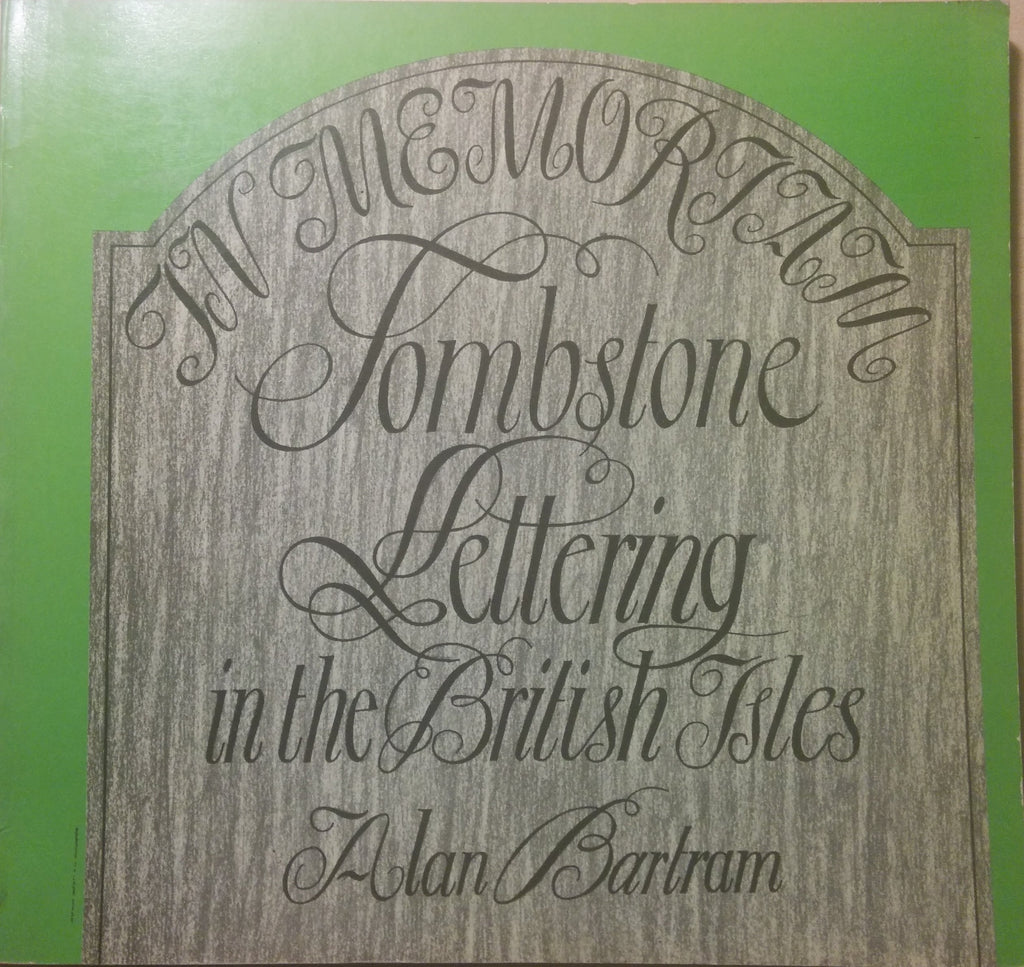 IN MEMORIAM
Tombstone
Lettering
in the British Isles
Alan Bartram